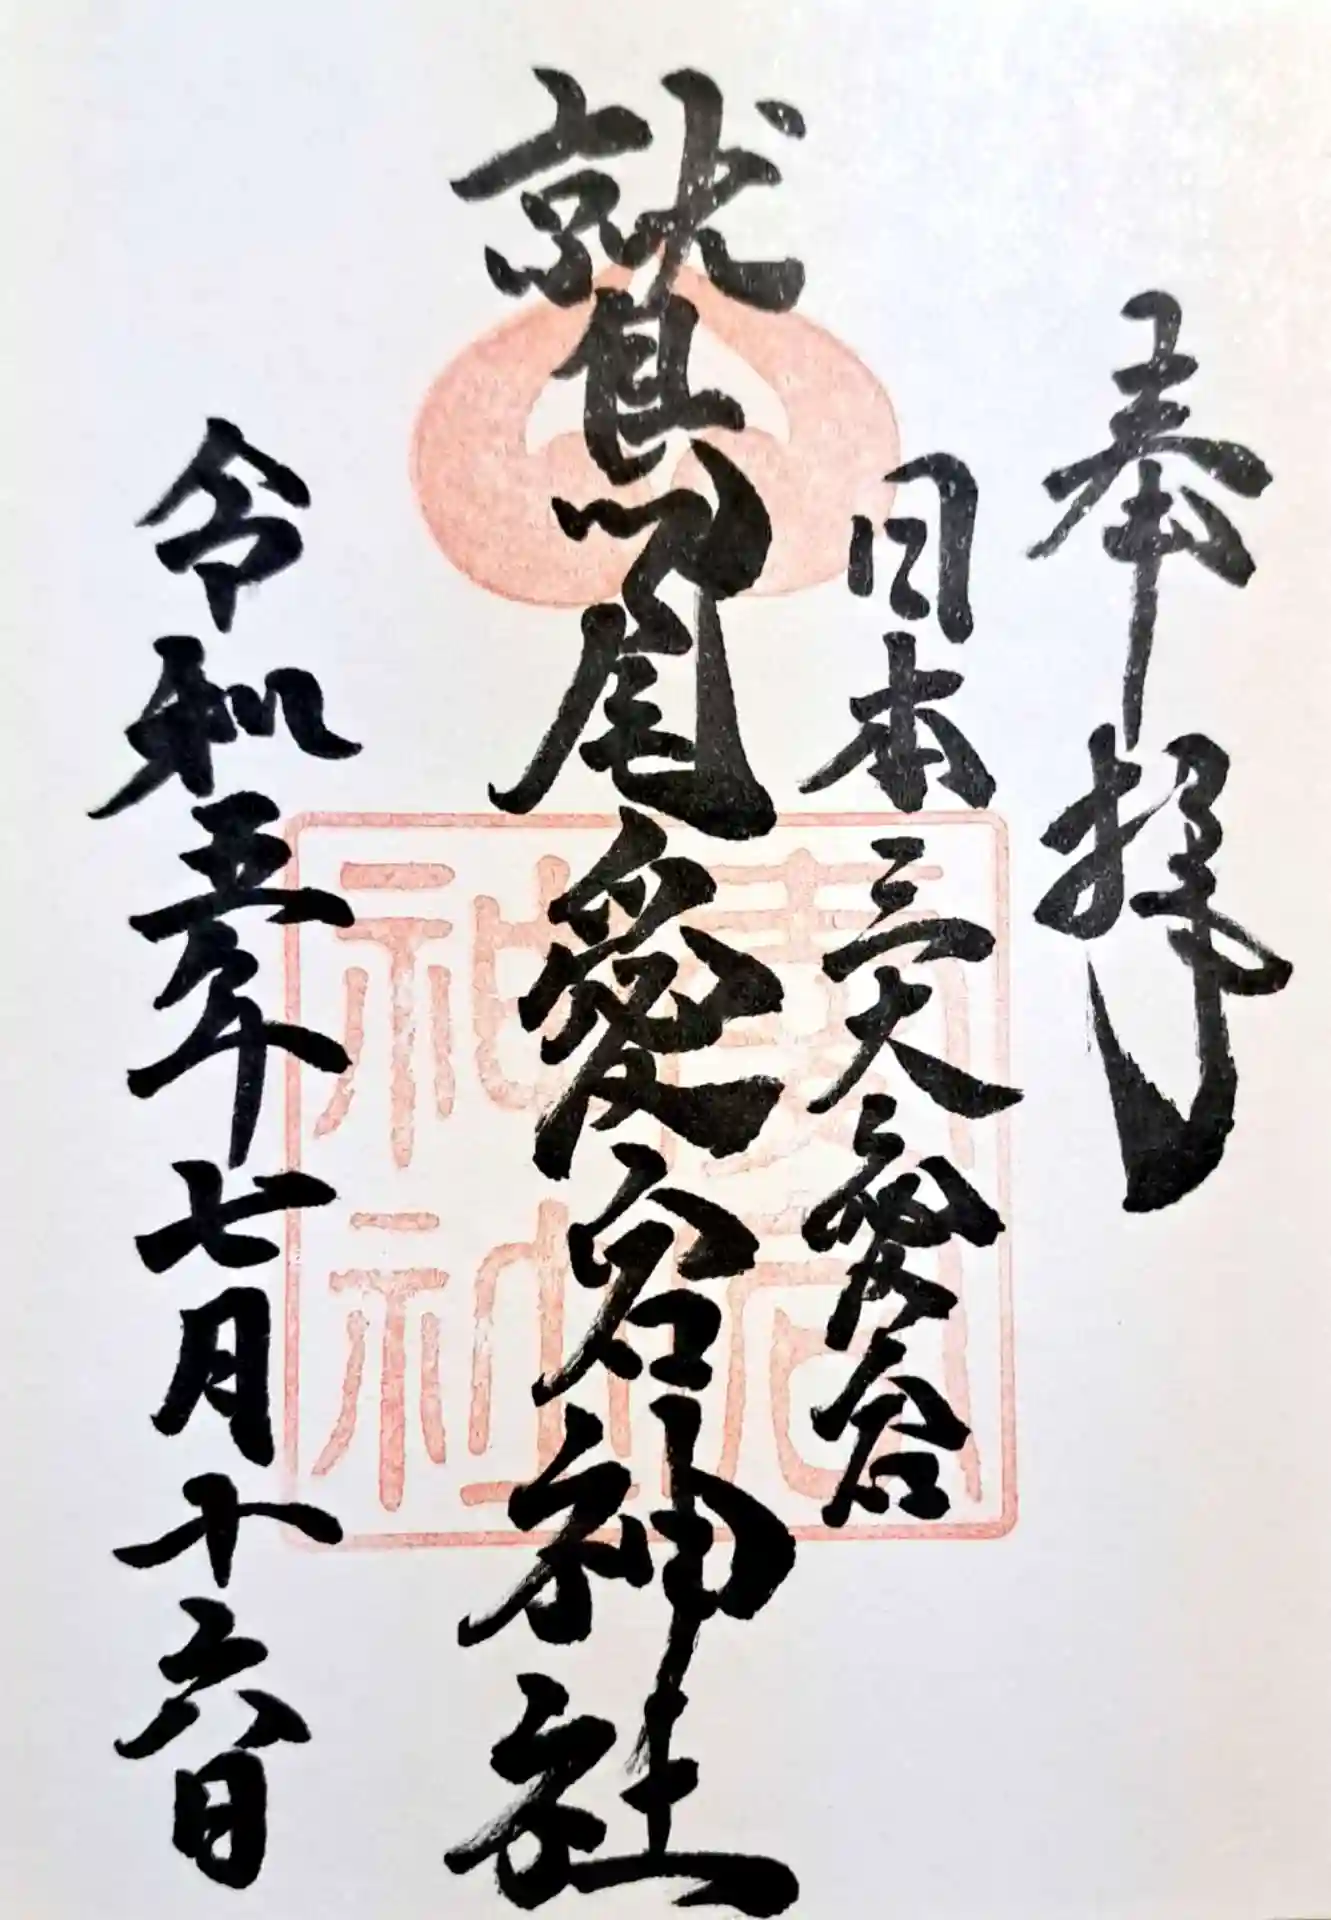 奉拝
日本三大愛宕
鷲尾愛宕神社
令和五年七月十六日
愛宕神社